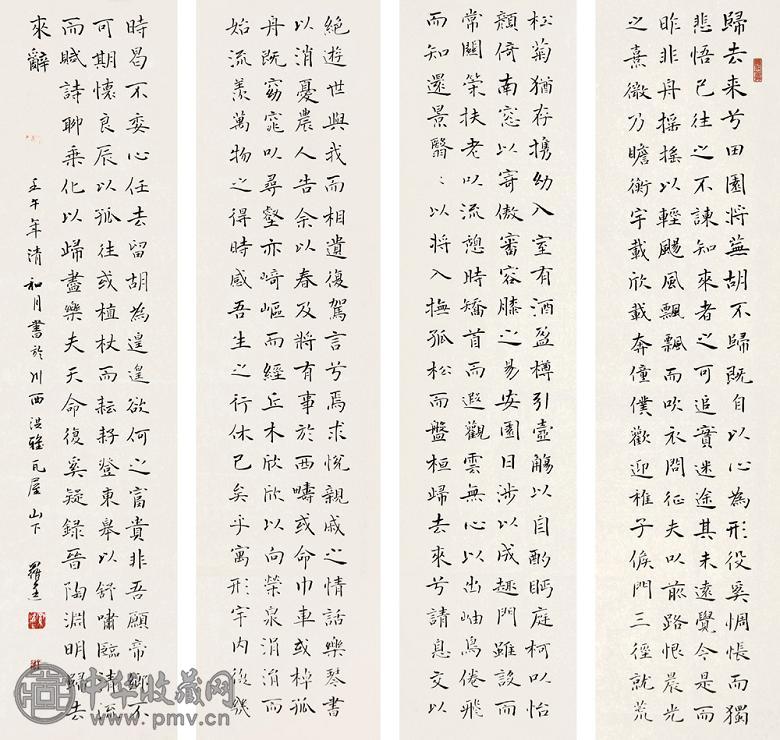 歸去來兮田園將蕪胡不歸既自以心為形役奚惆悵而獨
悲悟已往之不諫知來者之可追實迷途其未遠覺今是而
昨非舟搖搖以輕颺風飄飄而吹衣問征夫以前路恨晨光
之熹微乃瞻衡宇載欣載奔僮僕歡迎稚子候門三徑就荒
松菊猶存携幼入室有酒盈樽引壺觴以自酌眄庭柯以怡
顏倚南窓以寄傲審容膝之易安園日涉以成趣門雖設而
常關策扶老以流憩時矯首而遐觀雲無心以出岫鳥倦飛
而知還景翳〻以將入撫孤松而盤桓歸去來兮請息交以
絕遊世與我而相遺復駕言兮焉求悅親戚之情話樂琴書
以消憂農人告余以春及將有事於西疇或命巾車或棹孤
舟既窈窕以尋壑亦崎嶇而經丘木欣欣以向榮泉涓涓而
始流羨萬物之得時感吾生之行休已矣乎寓形宇內復幾
時曷不委心任去留胡為遑遑欲何之富貴非吾願帝鄉不
可期懷良辰以孤往或植杖而耘耔登東皋以舒嘯臨清流
而賦詩聊乘化以歸盡樂夫天命復奚疑錄晉陶淵明歸去
來辭
壬午年清和月書於川西洪雅瓦屋山下 羅
中华收藏网
www.pmv.cn